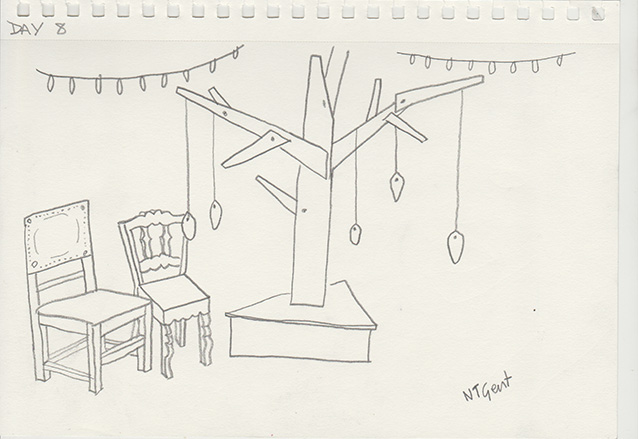 DAY 8
NTGent